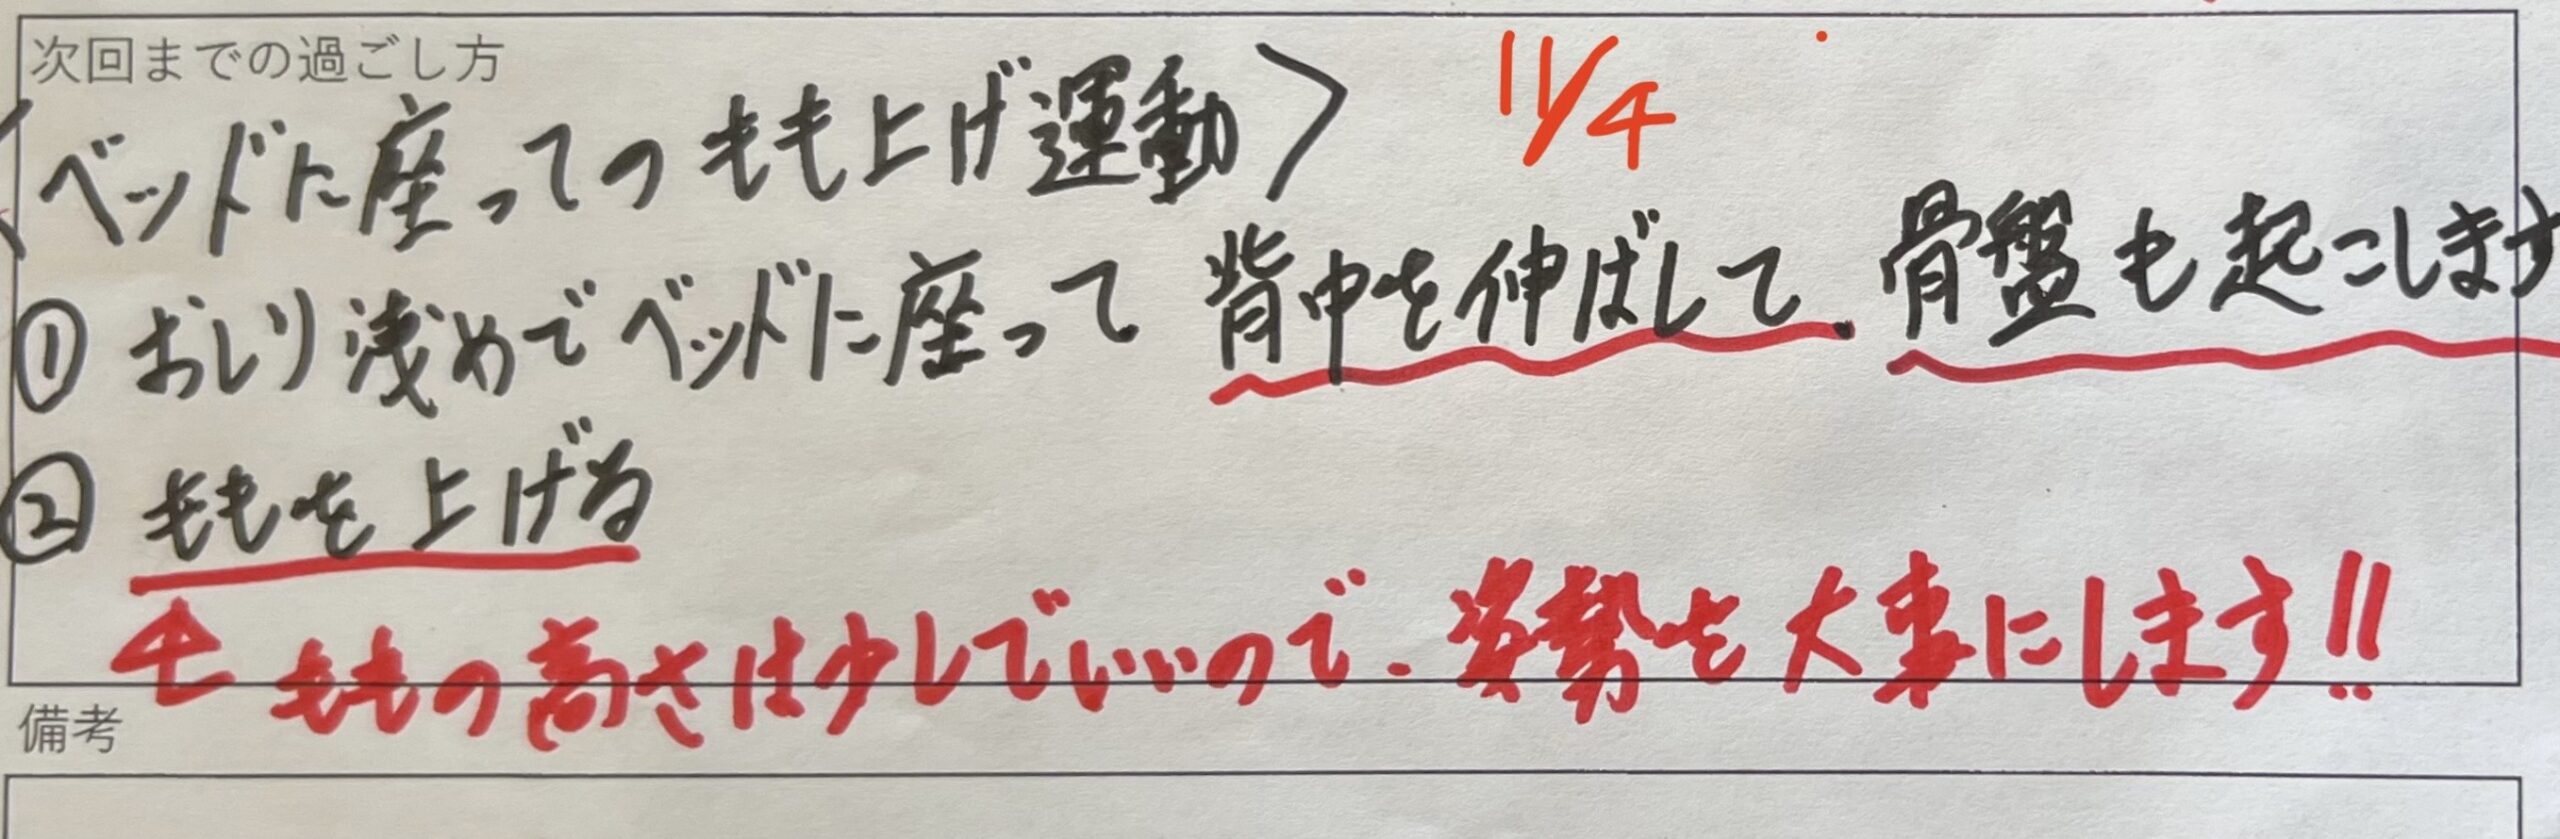 次回までの過ごし方
〈ベッドに座ってのもも上げ運動〉 11/4
① おしり浅めでベッドに座って 背中を伸ばして、骨盤も起こします
② ももを上げる
ももの高さは少しでいいので、姿勢を大事にします!!
備考